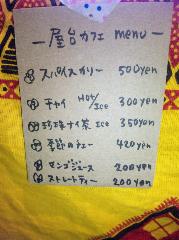 屋台カフェ menu
スパイスカリー 500yen
チャイ Hot/Ice 300yen
珍珠ナイ茶 Ice 350yen
季節のチェー 420yen
マンゴジュース 200yen
ストレートティー 200yen